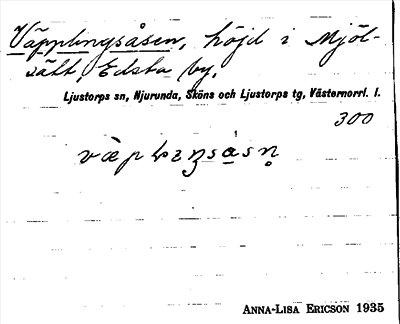 Väpplingsåsen, höjd i Mjöl-
sätt, Edsta by.
Ljustorps sn, Njurunda, Sköns och Ljustorps tg, Västernorrl. l.
300
ANNA-LISA ERICSON 1935